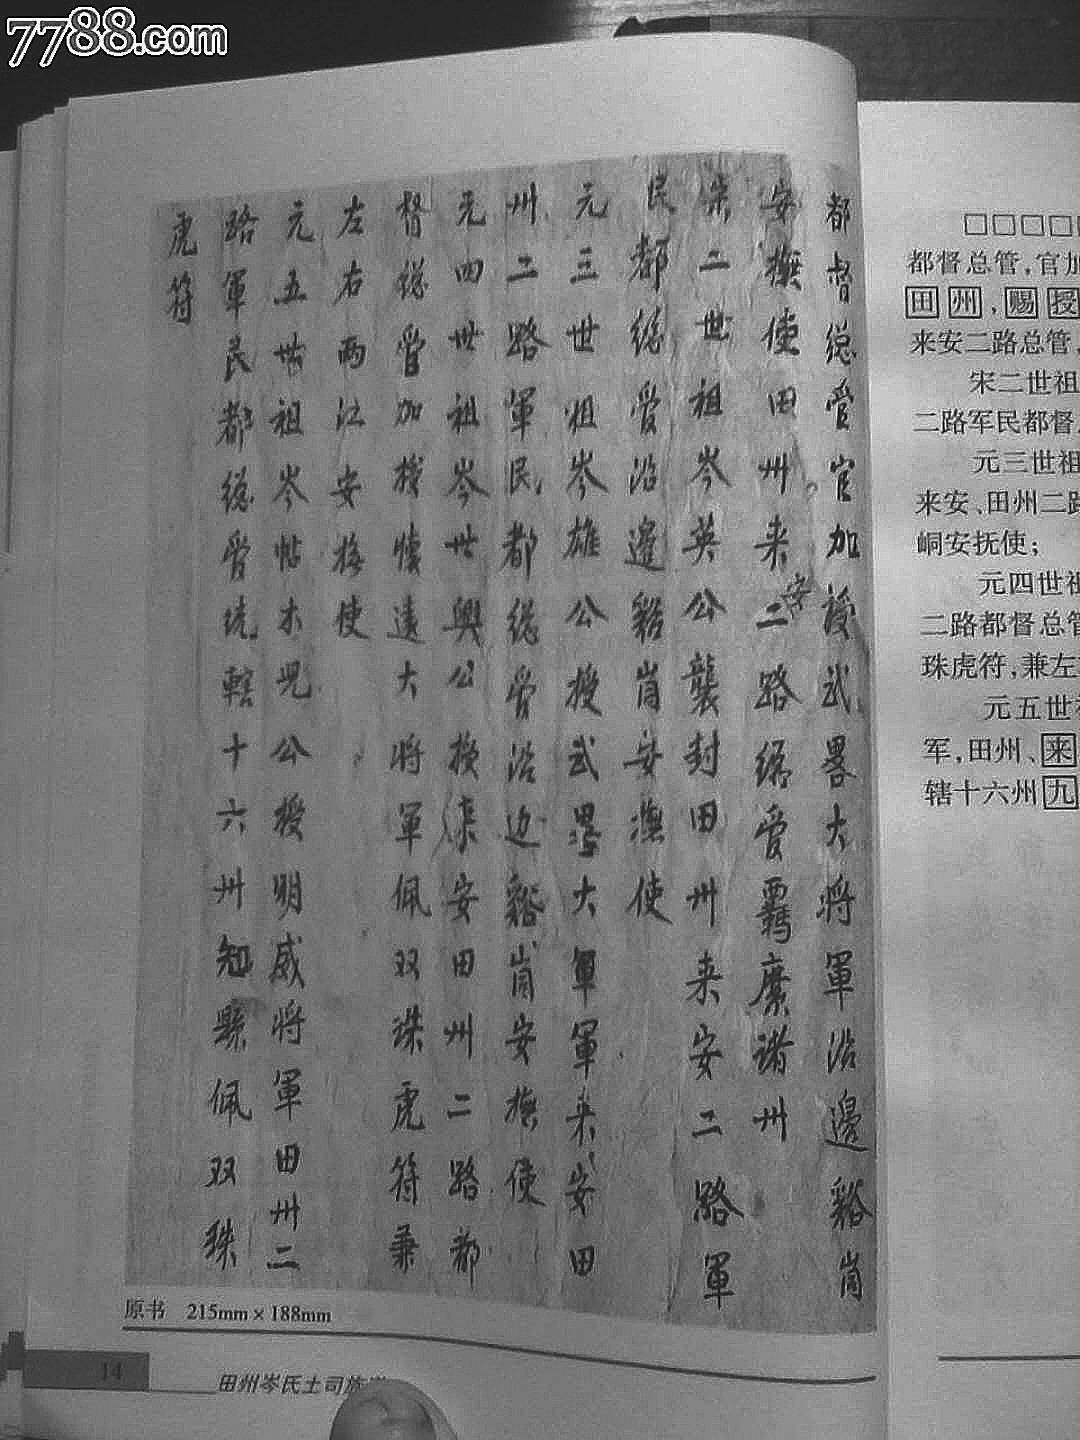 7788.com
都督總管官加授武畧大將軍沿邊谿峝
安撫使田州来安二路總管羈縻諸州
宋二世祖岑英公襲封田州来安二路軍
民都總管沿邊谿峝安撫使
元三世祖岑雄公授武畧大軍軍来安田
州二路軍民都總管沿边谿峝安撫使
元四世祖岑世興公授来安田州二路都
督總管加授懷遠大将軍佩双珠虎符兼
左右兩江安撫使
元五世祖岑帖木兒公授明威将軍田州二
路軍民都總管统轄十六州知縣佩双珠
虎符
原书 215mm×188mm
14
田州岑氏土司族
□□□□
都督总管,官加
田州,赐授
来安二路总管,
宋二世祖
二路军民都督
元三世祖
来安、田州二路
峒安抚使;
元四世祖
二路都督总管
珠虎符,兼左
元五世
军,田州、来
辖十六州九